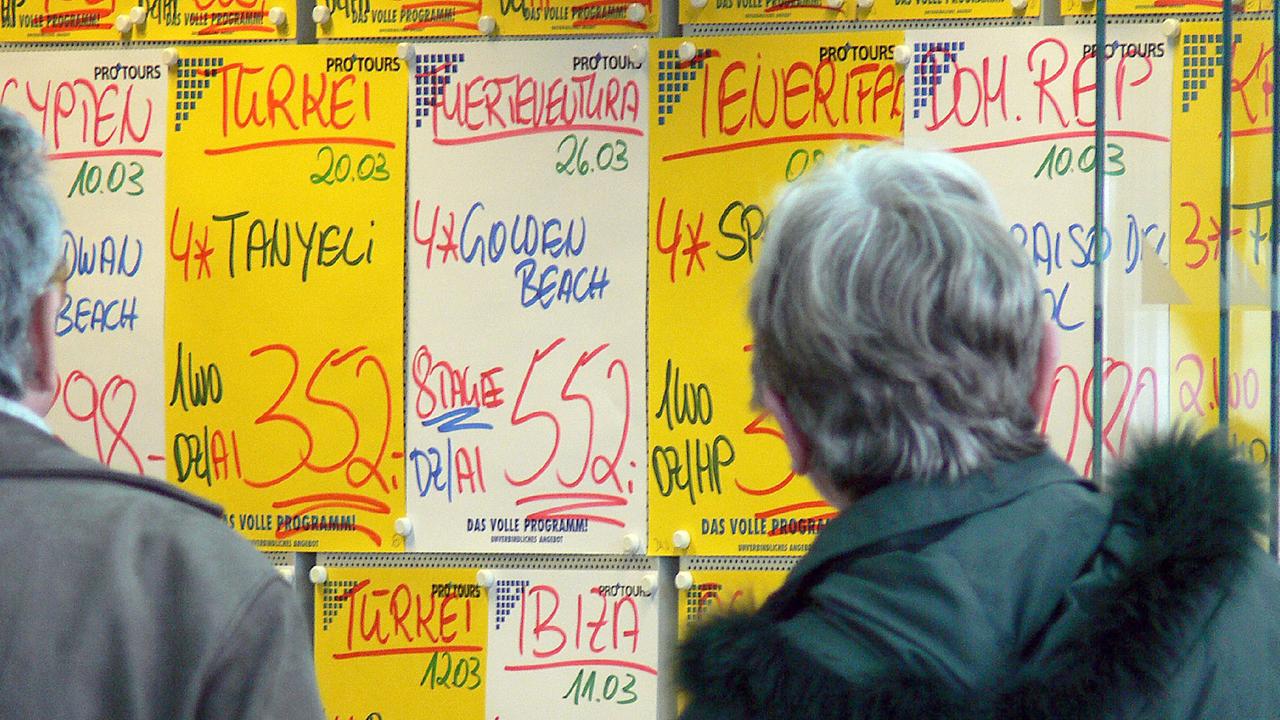 DAS VOLLE PROGRAMM!
DAS VOLLE PROGRAMM!
DAS VOLLE PROGRAMM!
DAS VOLLE PROGRAMM!
PRO TOURS
YPTEN
10.03
DWAN
BEACH
98.-
PRO TOURS
TÜRKEI
20.03
4* TANYELI
1WO
DZ/AI
352.-
DAS VOLLE PROGRAMM!
UNVERBINDLICHES ANGEBOT
PRO TOURS
FUERTEVENTURA
26.03
4* GOLDEN
BEACH
8 TAGE
DZ/AI
552.-
DAS VOLLE PROGRAMM!
UNVERBINDLICHES ANGEBOT
PRO TOURS
TENERIFFA
4* SP
1WO
DZ/HP
DAS VOLLE PROGRAMM
UNVERBINDLICHES ANGEBOT
PRO TOURS
DOM. REP
10.03
AISO DEL
3*
2.WO
PRO TOURS
TÜRKEI
12.03
PRO TOURS
IBIZA
11.03